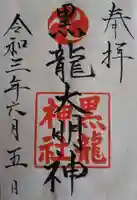 奉拝
黒龍大明神
黒龍
神社
令和三年六月五日